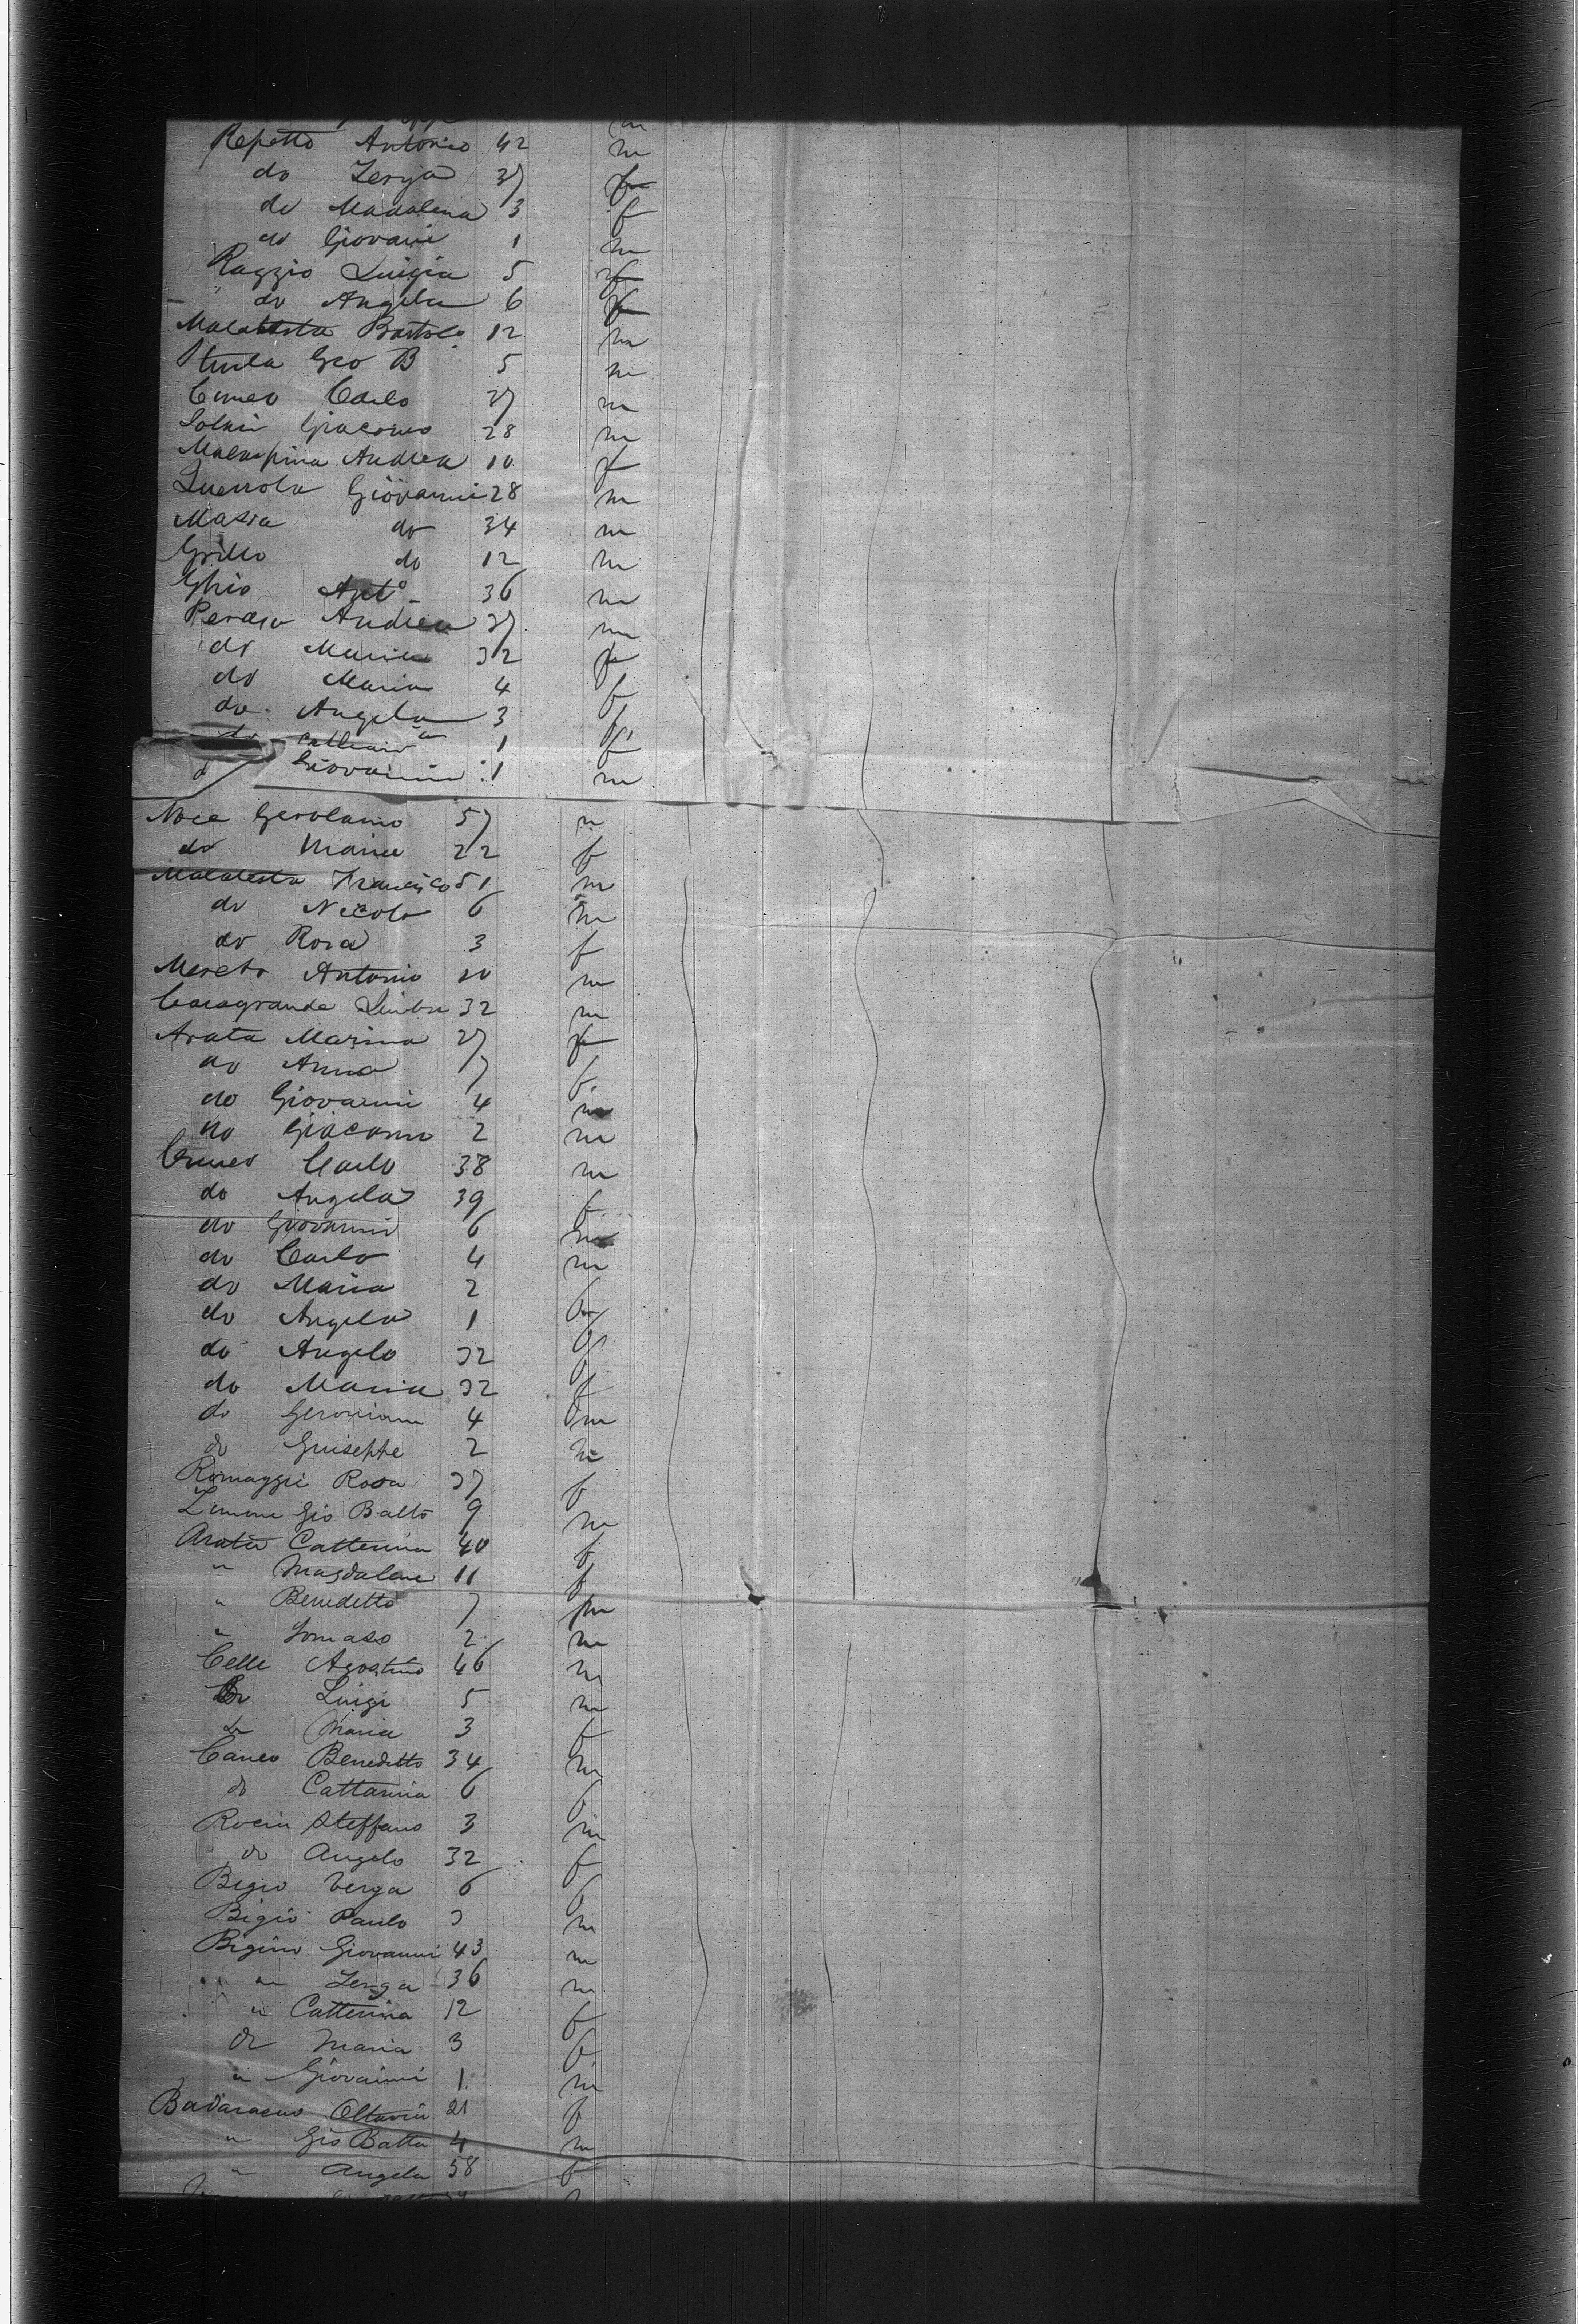 Repetto Antonio 42 m
do Zerga 37 f
do Madalena 3 f
do Giovani 1 m
Raggio Luigia 5 f
do Angela 6 f
Malatesta Bartolo 12 m
Geo B 5 m
Cuneo Carlo 37 m
Giacomo 28 m
Malaspina Andrea 10 f
Giovanni 28 m
Massa do 34 m
Grillo do 12 m
Ghio Anto 36 m
Peraso Andrea 37 m
do Maria 32 f
do Maria 4 f
do Angela 3 f
do 1 f
d Giovanni 1 m
Noce Gerolamo 57 m
do Maria 22 f
Malatesta Francisco 51 m
do Nicolo 6 m
do Rosa 3 f
Mereto Antonio 10 m
Casagrande 32 m
Arata Marina 27 f
do Anna 7 f
do Giovanni 4 m
do Giacomo 2 m
Cuneo Carlo 38 m
do Angela 39 f
do Giovanni 6 m
do Carlo 4 m
do Maria 2 f
do Angela 1 f
do Angelo 32 f
do Maria 32 f
do 4 m
do Guiseppe 2 m
Romaggi Rosa 37 f
Limone Gio Batto 9 m
Arata Catterina 40 f
" Magdalene 11 f
" Benedetto 7 m
" Tomaso 2 m
Celle Agostino 46 m
Do Luigi 5 m
Do Maria 3 f
Caneo Benedetto 34 m
do Cattarina 6 f
Steffano 3 m
do Angelo 32 f
Bigio Zerga 6 f
Bigio Paulo 3 m
Bigino Giovanni 43 m
" Zerga 36 m
" Catterina 12 f
do Maria 3 f
" Giovanni 1 m
Badaracuo Ottavia 21 f
" Gio Batta 4 m
" Angela 58 f